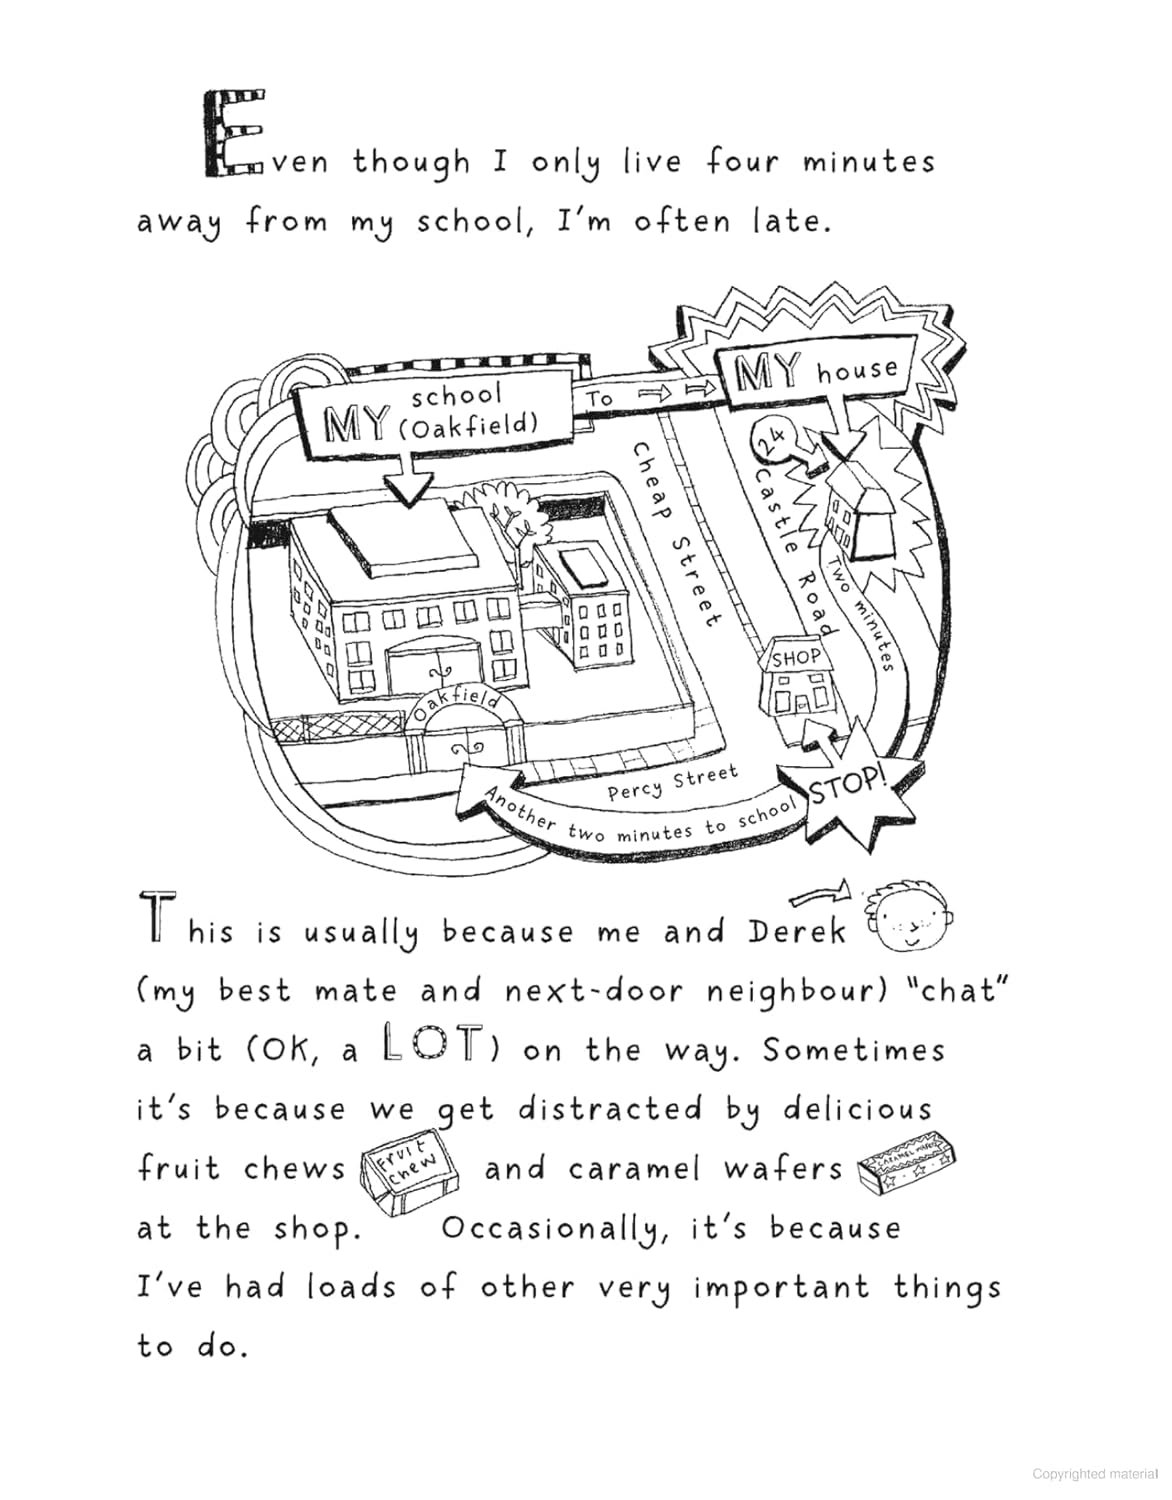 Even though I only live four minutes
away from my school, I'm often late.
MY school (Oakfield)
To
MY house
24
Cheap Street
Castle Road
Two minutes
SHOP
Oakfield
STOP!
Percy Street
Another two minutes to school
This is usually because me and Derek
(my best mate and next-door neighbour) "chat"
a bit (OK, a LOT) on the way. Sometimes
it's because we get distracted by delicious
fruit chews FRUIT chew and caramel wafers CARAMEL WAFER
at the shop. Occasionally, it's because
I've had loads of other very important things
to do.
Copyrighted material